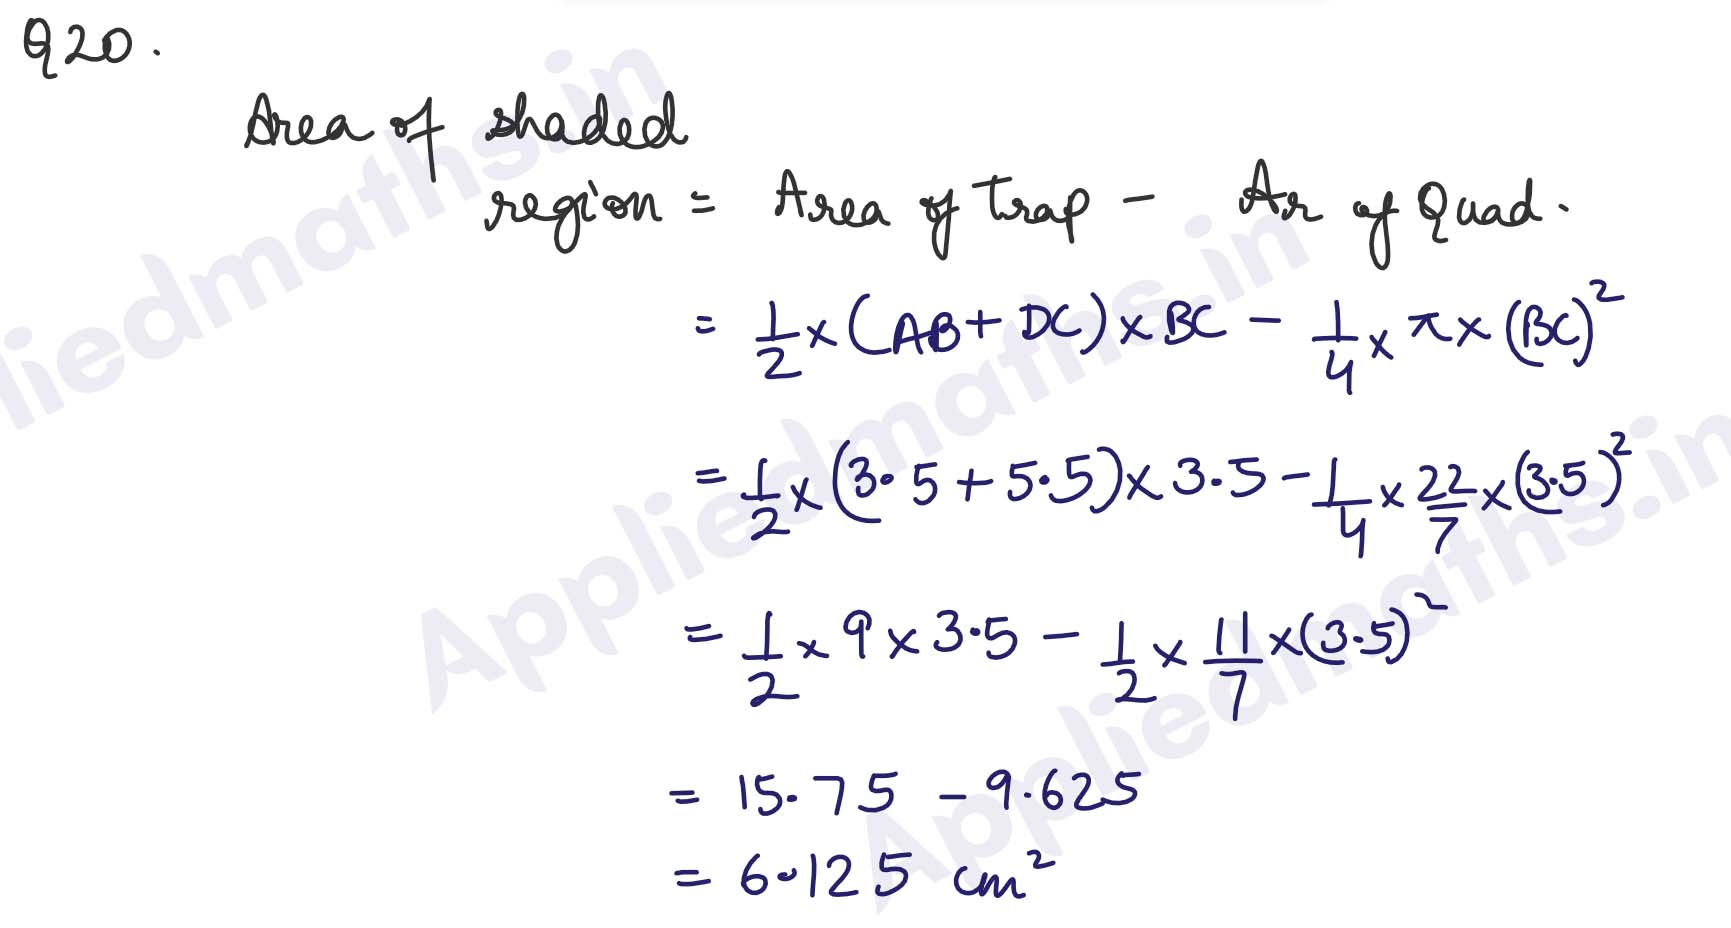 Q20.
Area of shaded
region = Area of Trap - Ar of Quad.
= 1/2 × (AB + DC) × BC - 1/4 × π × (BC)²
= 1/2 × (3.5 + 5.5) × 3.5 - 1/4 × 22/7 × (3.5)²
= 1/2 × 9 × 3.5 - 1/2 × 11/7 × (3.5)²
= 15.75 - 9.625
= 6.125 cm²
Appliedmaths.in
Appliedmaths.in
liedmaths.in